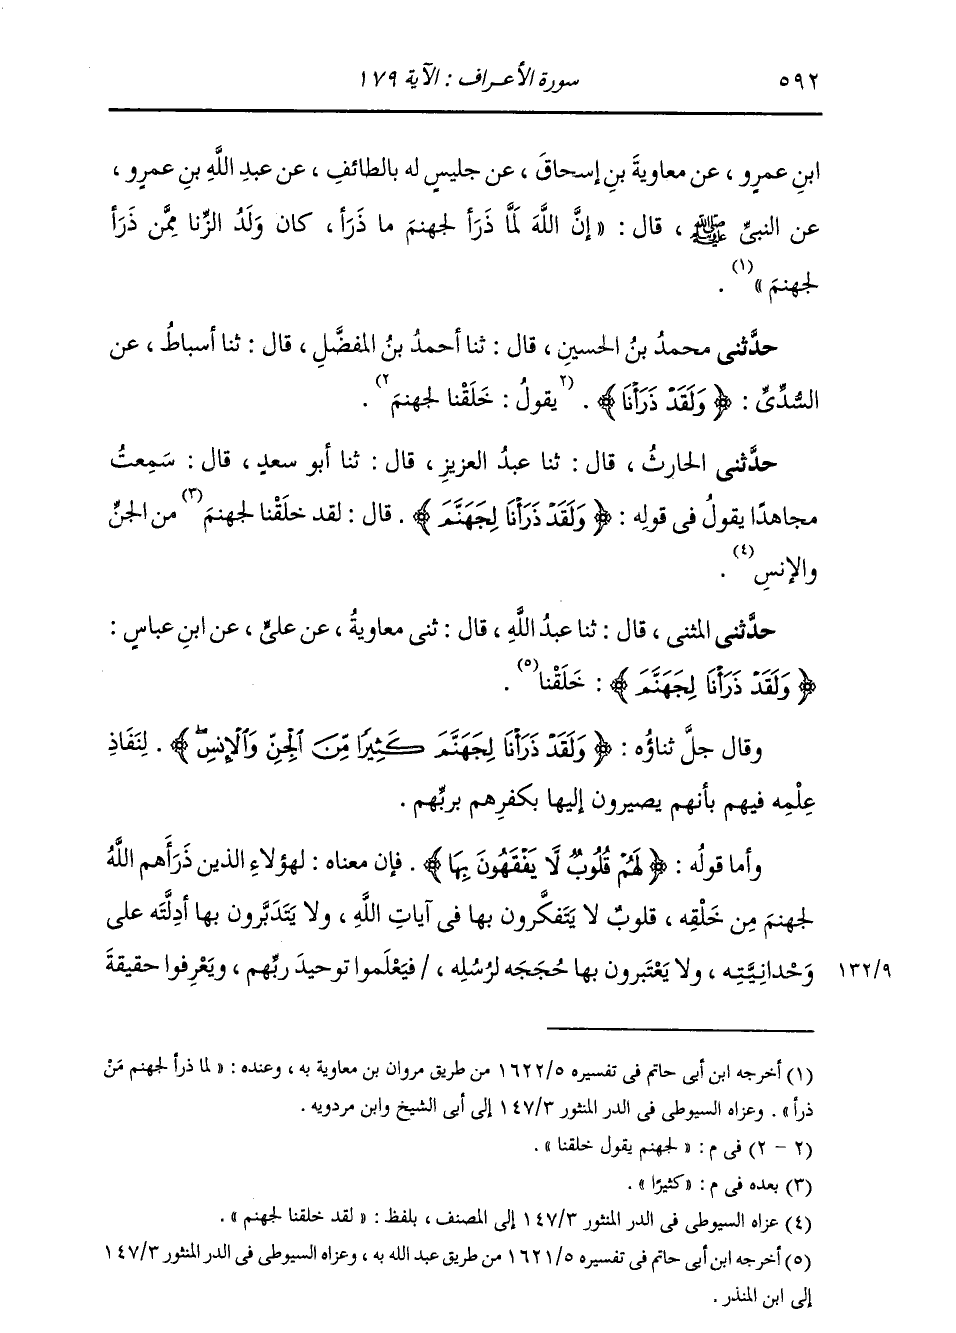 ٥٩٢ سورة الأعراف : الآية ١٧٩
ابنِ عمرٍو ، عن معاويةَ بنِ إسحاقَ ، عن جليسٍ له بالطائفِ ، عن عبدِ اللَّهِ بنِ عمرٍو ،
عن النبىِّ ﷺ ، قال : « إنَّ اللَّهَ لمَّا ذَرَأ لجهنمَ ما ذَرَأ ، كان وَلَدُ الزِّنا مِمَّن ذَرَأ
لجهنمَ »(١) .
حدَّثنى محمدُ بنُ الحسينِ ، قال : ثنا أحمدُ بنُ المفضَّلِ ، قال : ثنا أسباطُ ، عن
السُّدِّىِّ : ﴿ وَلَقَدْ ذَرَأْنَا ﴾ . (٢يقولُ : خَلَقْنا لجهنمَ٢) .
حدَّثنى الحارثُ ، قال : ثنا عبدُ العزيزِ ، قال : ثنا أبو سعدٍ ، قال : سَمِعتُ
مجاهدًا يقولُ فى قولِه : ﴿ وَلَقَدْ ذَرَأْنَا لِجَهَنَّمَ ﴾ . قال : لقد خلَقْنا لجهنمَ(٣) من الجنِّ
والإنسِ(٤) .
حدَّثنى المثنى ، قال : ثنا عبدُ اللَّهِ ، قال : ثنى معاويةُ ، عن علىٍّ ، عن ابنِ عباسٍ :
﴿ وَلَقَدْ ذَرَأْنَا لِجَهَنَّمَ ﴾ : خَلَقْنا(٥) .
وقال جلَّ ثناؤُه : ﴿ وَلَقَدْ ذَرَأْنَا لِجَهَنَّمَ كَثِيرًا مِّنَ ٱلْجِنِّ وَٱلْإِنسِۖ ﴾ . لِنَفَاذِ
عِلْمِه فيهم بأنهم يصيرون إليها بكفرِهم بربِّهم .
وأما قولُه : ﴿ لَهُمْ قُلُوبٌ لَّا يَفْقَهُونَ بِهَا ﴾ . فإن معناه : لهؤلاءِ الذين ذَرَأَهم اللَّهُ
لجهنمَ مِن خَلْقِه ، قلوبٌ لا يَتَفكَّرون بها فى آياتِ اللَّهِ ، ولا يَتَدَبَّرون بها أدِلَّتَه على
وَحْدانِيَّتِه ، ولا يَعْتَبرون بها حُجَجَه لرُسُلِه ، / فيَعْلَموا توحيدَ ربِّهم ، ويَعْرِفوا حقيقةَ ١٣٢/٩
(١) أخرجه ابن أبى حاتم فى تفسيره ١٦٢٢/٥ من طريق مروان بن معاوية به ، وعنده : « لما ذرأ لجهنم مَنْ
ذرأ » . وعزاه السيوطى فى الدر المنثور ١٤٧/٣ إلى أبى الشيخ وابن مردويه .
(٢ - ٢) فى م : « لجهنم يقول خلقنا » .
(٣) بعده فى م : « كثيرًا » .
(٤) عزاه السيوطى فى الدر المنثور ١٤٧/٣ إلى المصنف ، بلفظ : « لقد خلقنا لجهنم » .
(٥) أخرجه ابن أبى حاتم فى تفسيره ١٦٢١/٥ من طريق عبد الله به ، وعزاه السيوطى فى الدر المنثور ١٤٧/٣
إلى ابن المنذر .